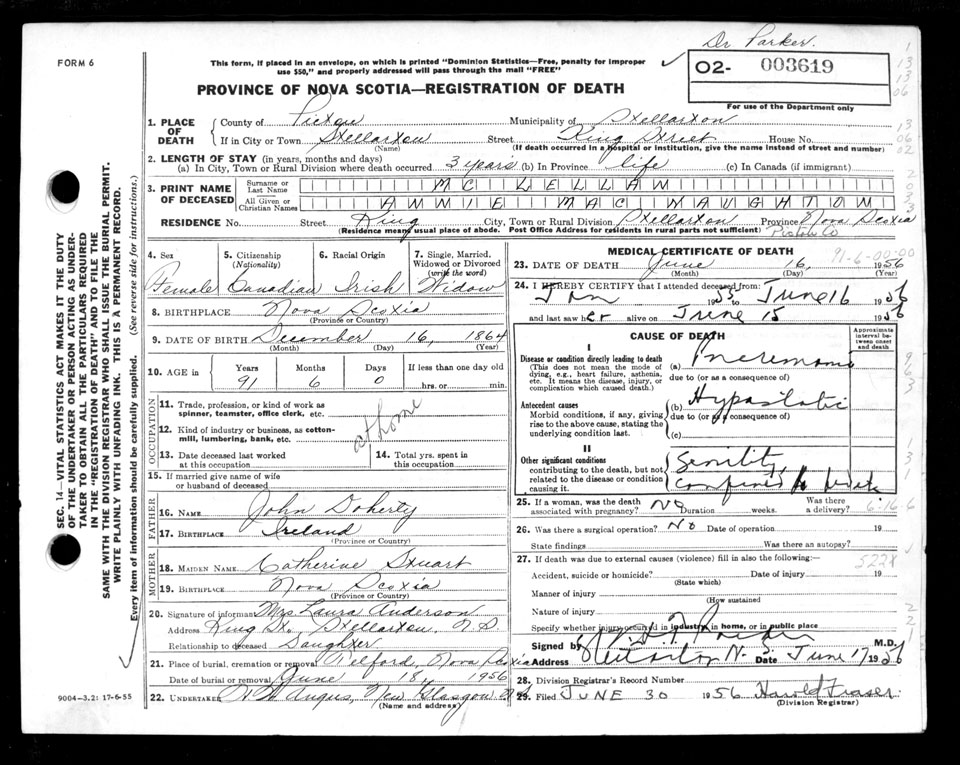 Dr Parker.
FORM 6
This form, if placed in an envelope, on which is printed "Dominion Statistics—Free, penalty for improper
use $50," and properly addressed will pass through the mail "FREE"
O2- 003619
PROVINCE OF NOVA SCOTIA—REGISTRATION OF DEATH
For use of the Department only
1. PLACE OF DEATH
County of Pictou Municipality of Stellarton
If in City or Town Stellarton Street King Street House No.
(Name) (If death occurred in a hospital or institution, give the name instead of street and number)
2. LENGTH OF STAY (in years, months and days)
(a) In City, Town or Rural Division where death occurred 3 years (b) In Province life (c) In Canada (if immigrant)
3. PRINT NAME OF DECEASED
Surname or Last Name MC LELLAN
All Given or Christian Names ANNIE MAC NAUGHTON
RESIDENCE No. Street King City, Town or Rural Division Stellarton Province Nova Scotia
(Residence means usual place of abode. Post Office Address for residents in rural parts not sufficient) Pictou Co
4. Sex Female
5. Citizenship (Nationality) Canadian
6. Racial Origin Irish
7. Single, Married, Widowed or Divorced (write the word) Widow
8. BIRTHPLACE Nova Scotia
(Province or Country)
9. DATE OF BIRTH December 16, 1864
(Month) (Day) (Year)
10. AGE in Years 91 Months 6 Days 0 If less than one day old hrs. or min.
OCCUPATION
11. Trade, profession, or kind of work as spinner, teamster, office clerk, etc. at home
12. Kind of industry or business, as cotton-mill, lumbering, bank, etc.
13. Date deceased last worked at this occupation
14. Total yrs. spent in this occupation
15. If married give name of wife or husband of deceased
FATHER
16. NAME John Doherty
17. BIRTHPLACE Ireland
(Province or Country)
MOTHER
18. MAIDEN NAME Catherine Stuart
19. BIRTHPLACE Nova Scotia
(Province or Country)
20. Signature of informant Mrs Laura Anderson
Address King St., Stellarton, N.S.
Relationship to deceased Daughter
21. Place of burial, cremation or removal Telford, Nova Scotia
Date of burial or removal June 18, 1956
22. UNDERTAKER Angus, New Glasgow N.S.
(Name and address)
MEDICAL CERTIFICATE OF DEATH
91-6-00-00
23. DATE OF DEATH June 16, 1956
(Month) (Day) (Year)
24. I HEREBY CERTIFY that I attended deceased from:
Jan 1955 to June 16 1956
and last saw her alive on June 15 1956
CAUSE OF DEATH
Approximate interval between onset and death
I
Disease or condition directly leading to death
(This does not mean the mode of dying, e.g., heart failure, asthenia, etc. It means the disease, injury, or complication which caused death.)
(a) Pneumonia
due to (or as a consequence of)
Antecedent causes
Morbid conditions, if any, giving rise to the above cause, stating the underlying condition last.
(b) Hypostatic
due to (or as a consequence of)
(c)
II
Other significant conditions
contributing to the death, but not related to the disease or condition causing it.
Senility,
confined to bed
25. If a woman, was the death associated with pregnancy? No Duration weeks. Was there a delivery?
26. Was there a surgical operation? No Date of operation 19
State findings Was there an autopsy?
27. If death was due to external causes (violence) fill in also the following:—
Accident, suicide or homicide? Date of injury 19
(State which)
Manner of injury
(How sustained
Nature of injury
Specify whether injury occurred in industry, in home, or in public place
Signed by M.D.
Address N.S. Date June 17 1956
28. Division Registrar's Record Number
29. Filed JUNE 30 1956 Harold Fraser
(Division Registrar)
SEC. 14—VITAL STATISTICS ACT MAKES IT THE DUTY
OF THE UNDERTAKER OR PERSON ACTING AS UNDER-
TAKER TO OBTAIN ALL THE PARTICULARS REQUIRED
IN THE "REGISTRATION OF DEATH" AND TO FILE THE
SAME WITH THE DIVISION REGISTRAR WHO SHALL ISSUE THE BURIAL PERMIT.
WRITE PLAINLY WITH UNFADING INK. THIS IS A PERMANENT RECORD.
Every item of information should be carefully supplied. (See reverse side for instructions.)
9004-3.2: 17-6-55